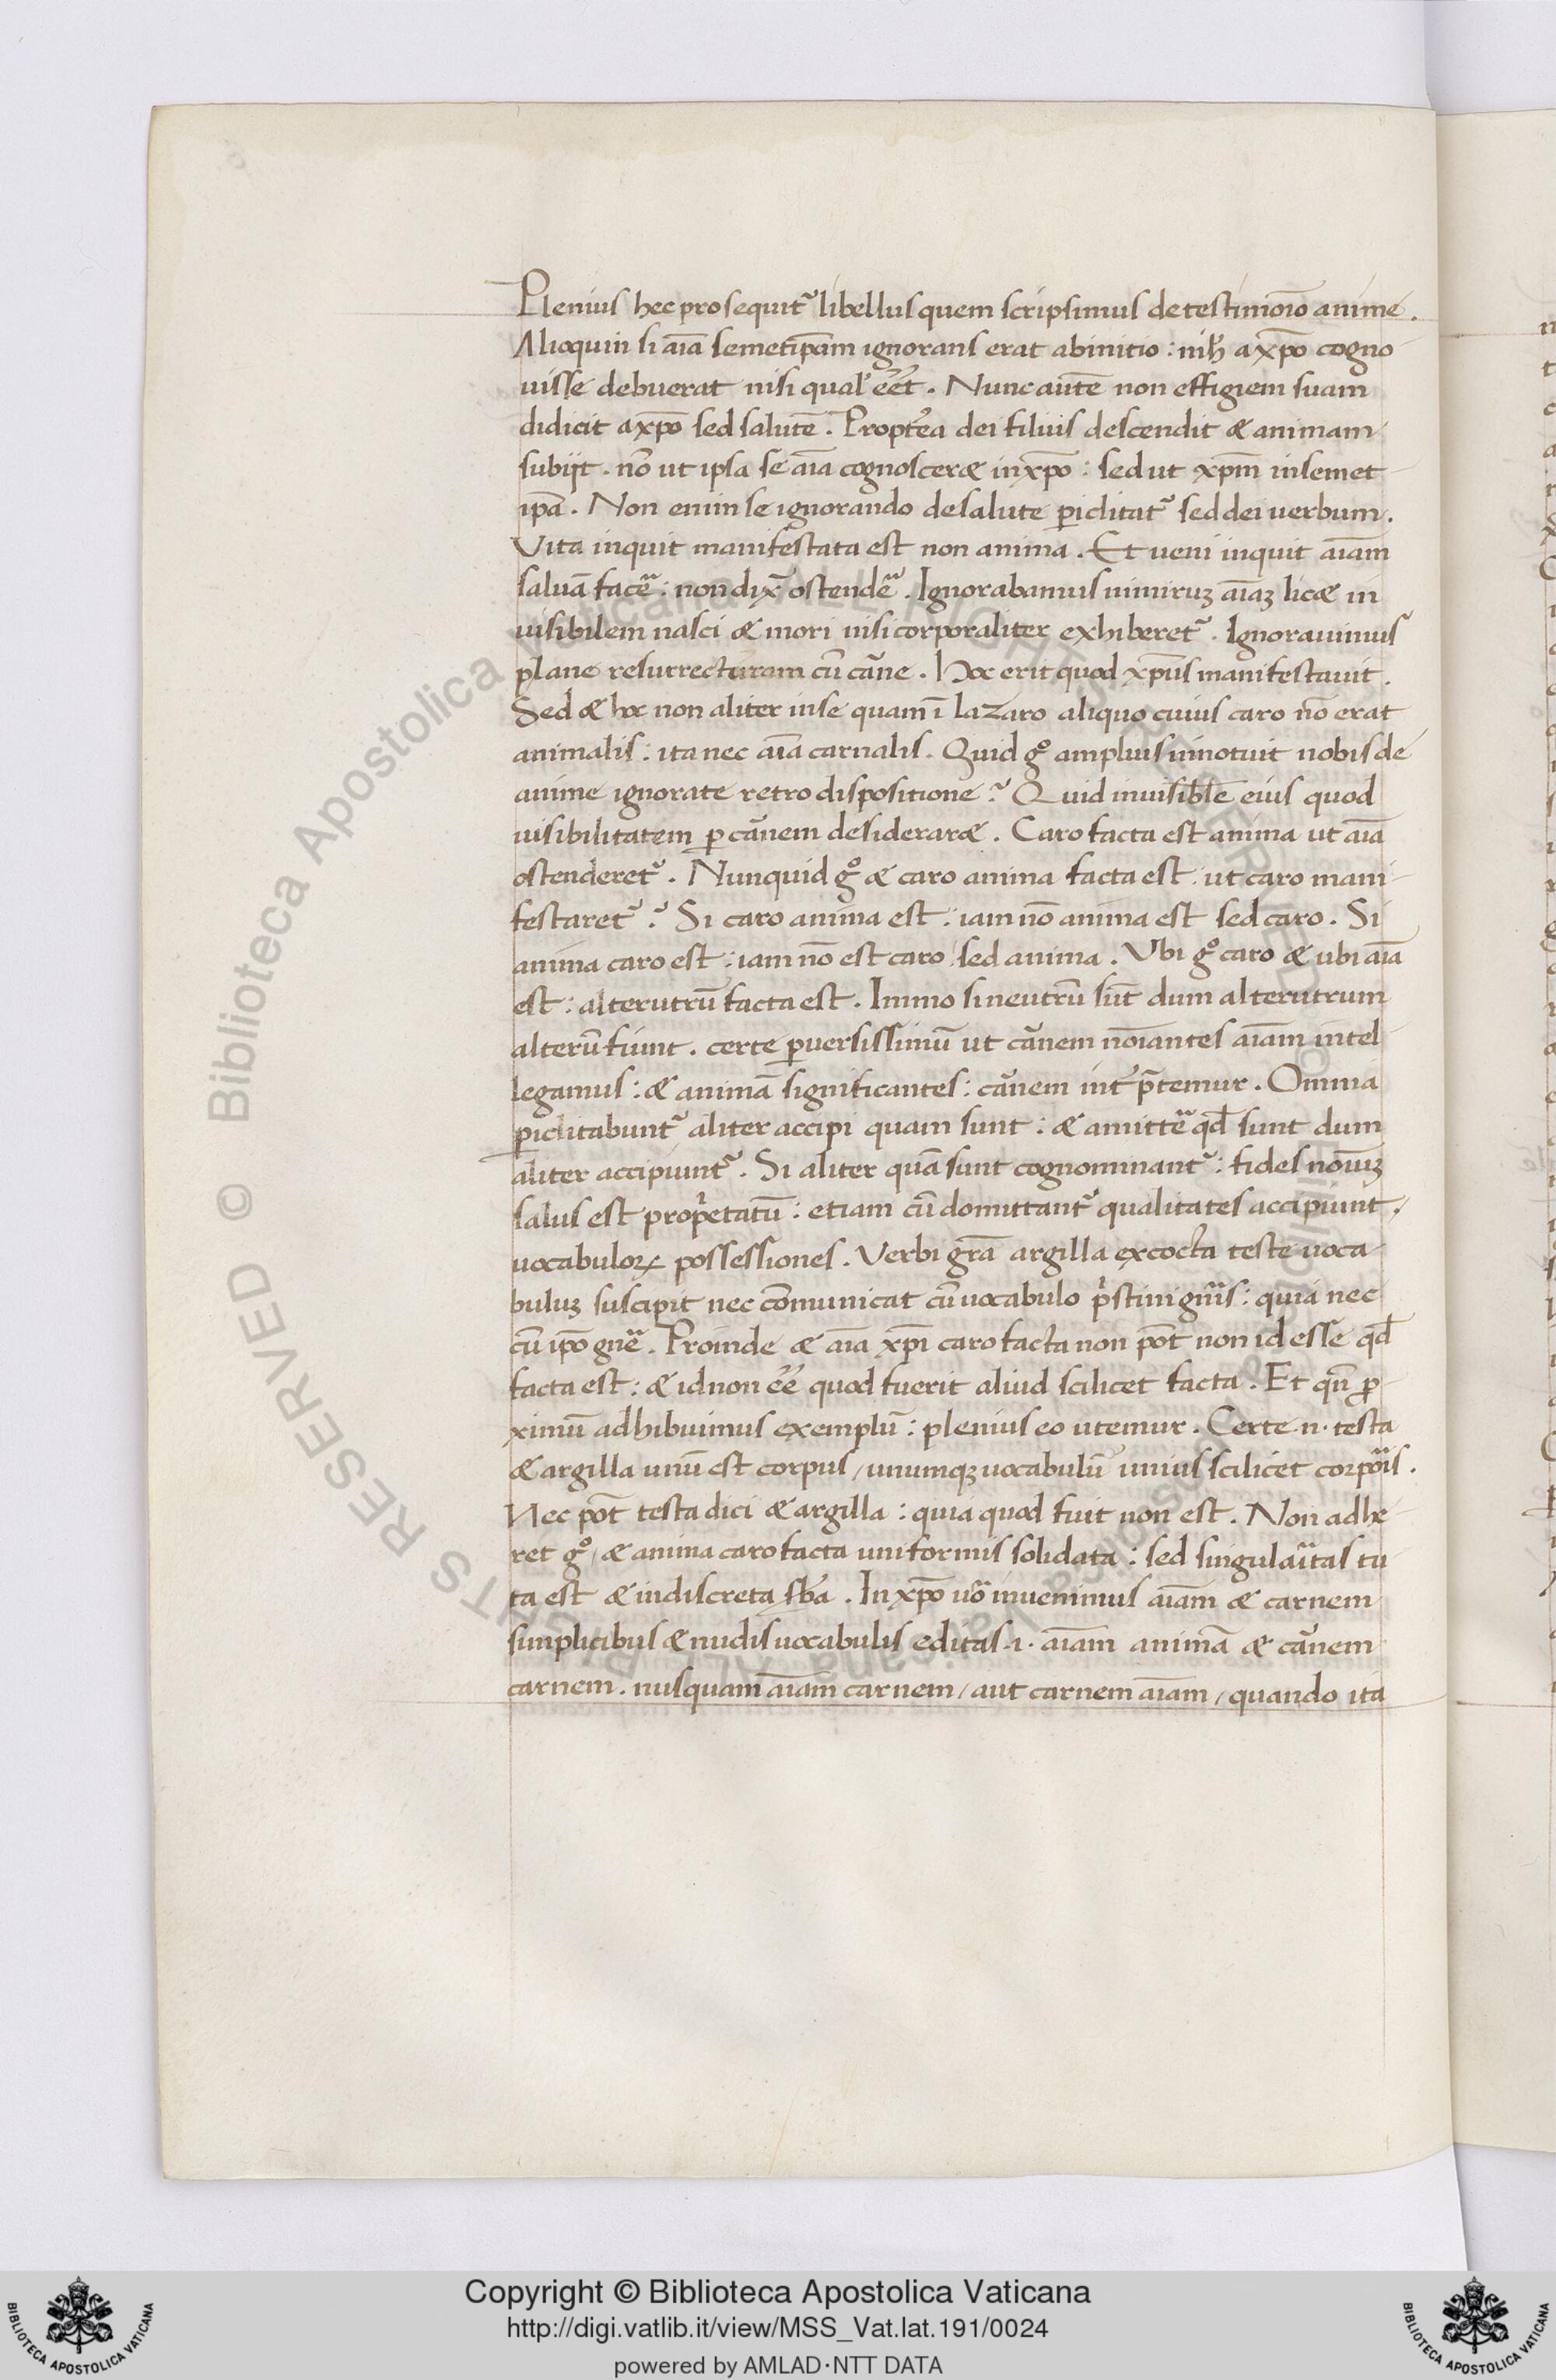 Plenius hec prosequit᷑ libellus quem scripsimus de testimoīo anime.
Alioquin si aīa semetip̄am ignorans erat ab initio: nih̄ a xp̄o cogno
uisse debuerat nisi qual̄ eēt. Nunc autē non effigiem suam
didicit a xp̄o sed salutē. Propt̄ea dei filius descendit & animam
subijt. nō ut ipsa se aīa cognoscer& in xp̄o: sed ut xp̄m in semet
ip̄a. Non enim se ignorando de salute ꝑiclitat᷑ sed dei uerbum.
Vita inquit manifestata est non anima. Et ueni inquit aīam
saluā facē: non dix̄ ostendē. Ignorabamus nimiruꝫ aīaꝫ lic& in
uisibilem nasci & mori nisi corporaliter exhiberet᷑. Ignorauimus
plane resurrecturam cū cāne. Hoc erit quod xp̄us manifestauit.
Sed & hoc non aliter in se quam ī Lazaro aliquo cuius caro nō erat
animalis: ita nec aīa carnalis. Quid gͦ amplius innotuit nobis de
anime ignorate retro dispositione? Quid inuisibl̄e eius quod
uisibilitatem ꝑ cānem desiderar&. Caro facta est anima ut aīa
ostenderet᷑. Nunquid gͦ & caro anima facta est. ut caro mani
festaret᷑? Si caro anima est: iam nō anima est sed caro. Si
anima caro est: iam nō est caro / sed anima. Vbi gͦ caro & ubi aīa
est: alterutrū facta est. Immo si neutrū sūt dum alterutrum
alterū fiunt. certe ꝑuersissimū ut cānem noīantes aīam intel
legamus: & animā significantes: cānem int᷑p̄temur. Omnia
ꝑiclitabunt᷑ aliter accipi quam sunt: & amittē qd̄ sunt dum
aliter accipiunt᷑. Si aliter quā sunt cognominant᷑: fides noīuꝫ
salus est prop̄etatū: etiam cū demittant᷑ qualitates accipiunt.
uocabuloꝝ possessiones. Verbi grā argilla excocta teste uoca
buluꝫ suscipit nec cōmunicat cū uocabulo p̄stini gn̄is: quia nec
cū ip̄o gnē. Proinde & aīa xp̄i caro facta non pōt non id esse qd̄
facta est: & id non eē quod fuerit aliud scilicet facta. Et qn̄ ꝓ
ximū adhibuimus exemplū: plenius eo utemur. Certe .n. testa
& argilla unū est corpus / unumqꝫ uocabulū unius scilicet corpōis.
Nec pōt testa dici & argilla: quia quod fuit non est. Non adhe
ret gͦ / & anima caro facta uniformis solidata: sed singulaītas tu
ta est & indiscreta sb̄a. In xp̄o uō inuenimus aīam & carnem
simplicibus & nudis uocabulis editas .i. aīam animā & cānem
carnem. nusquam aīam carnem / aut carnem aīam / quando ita